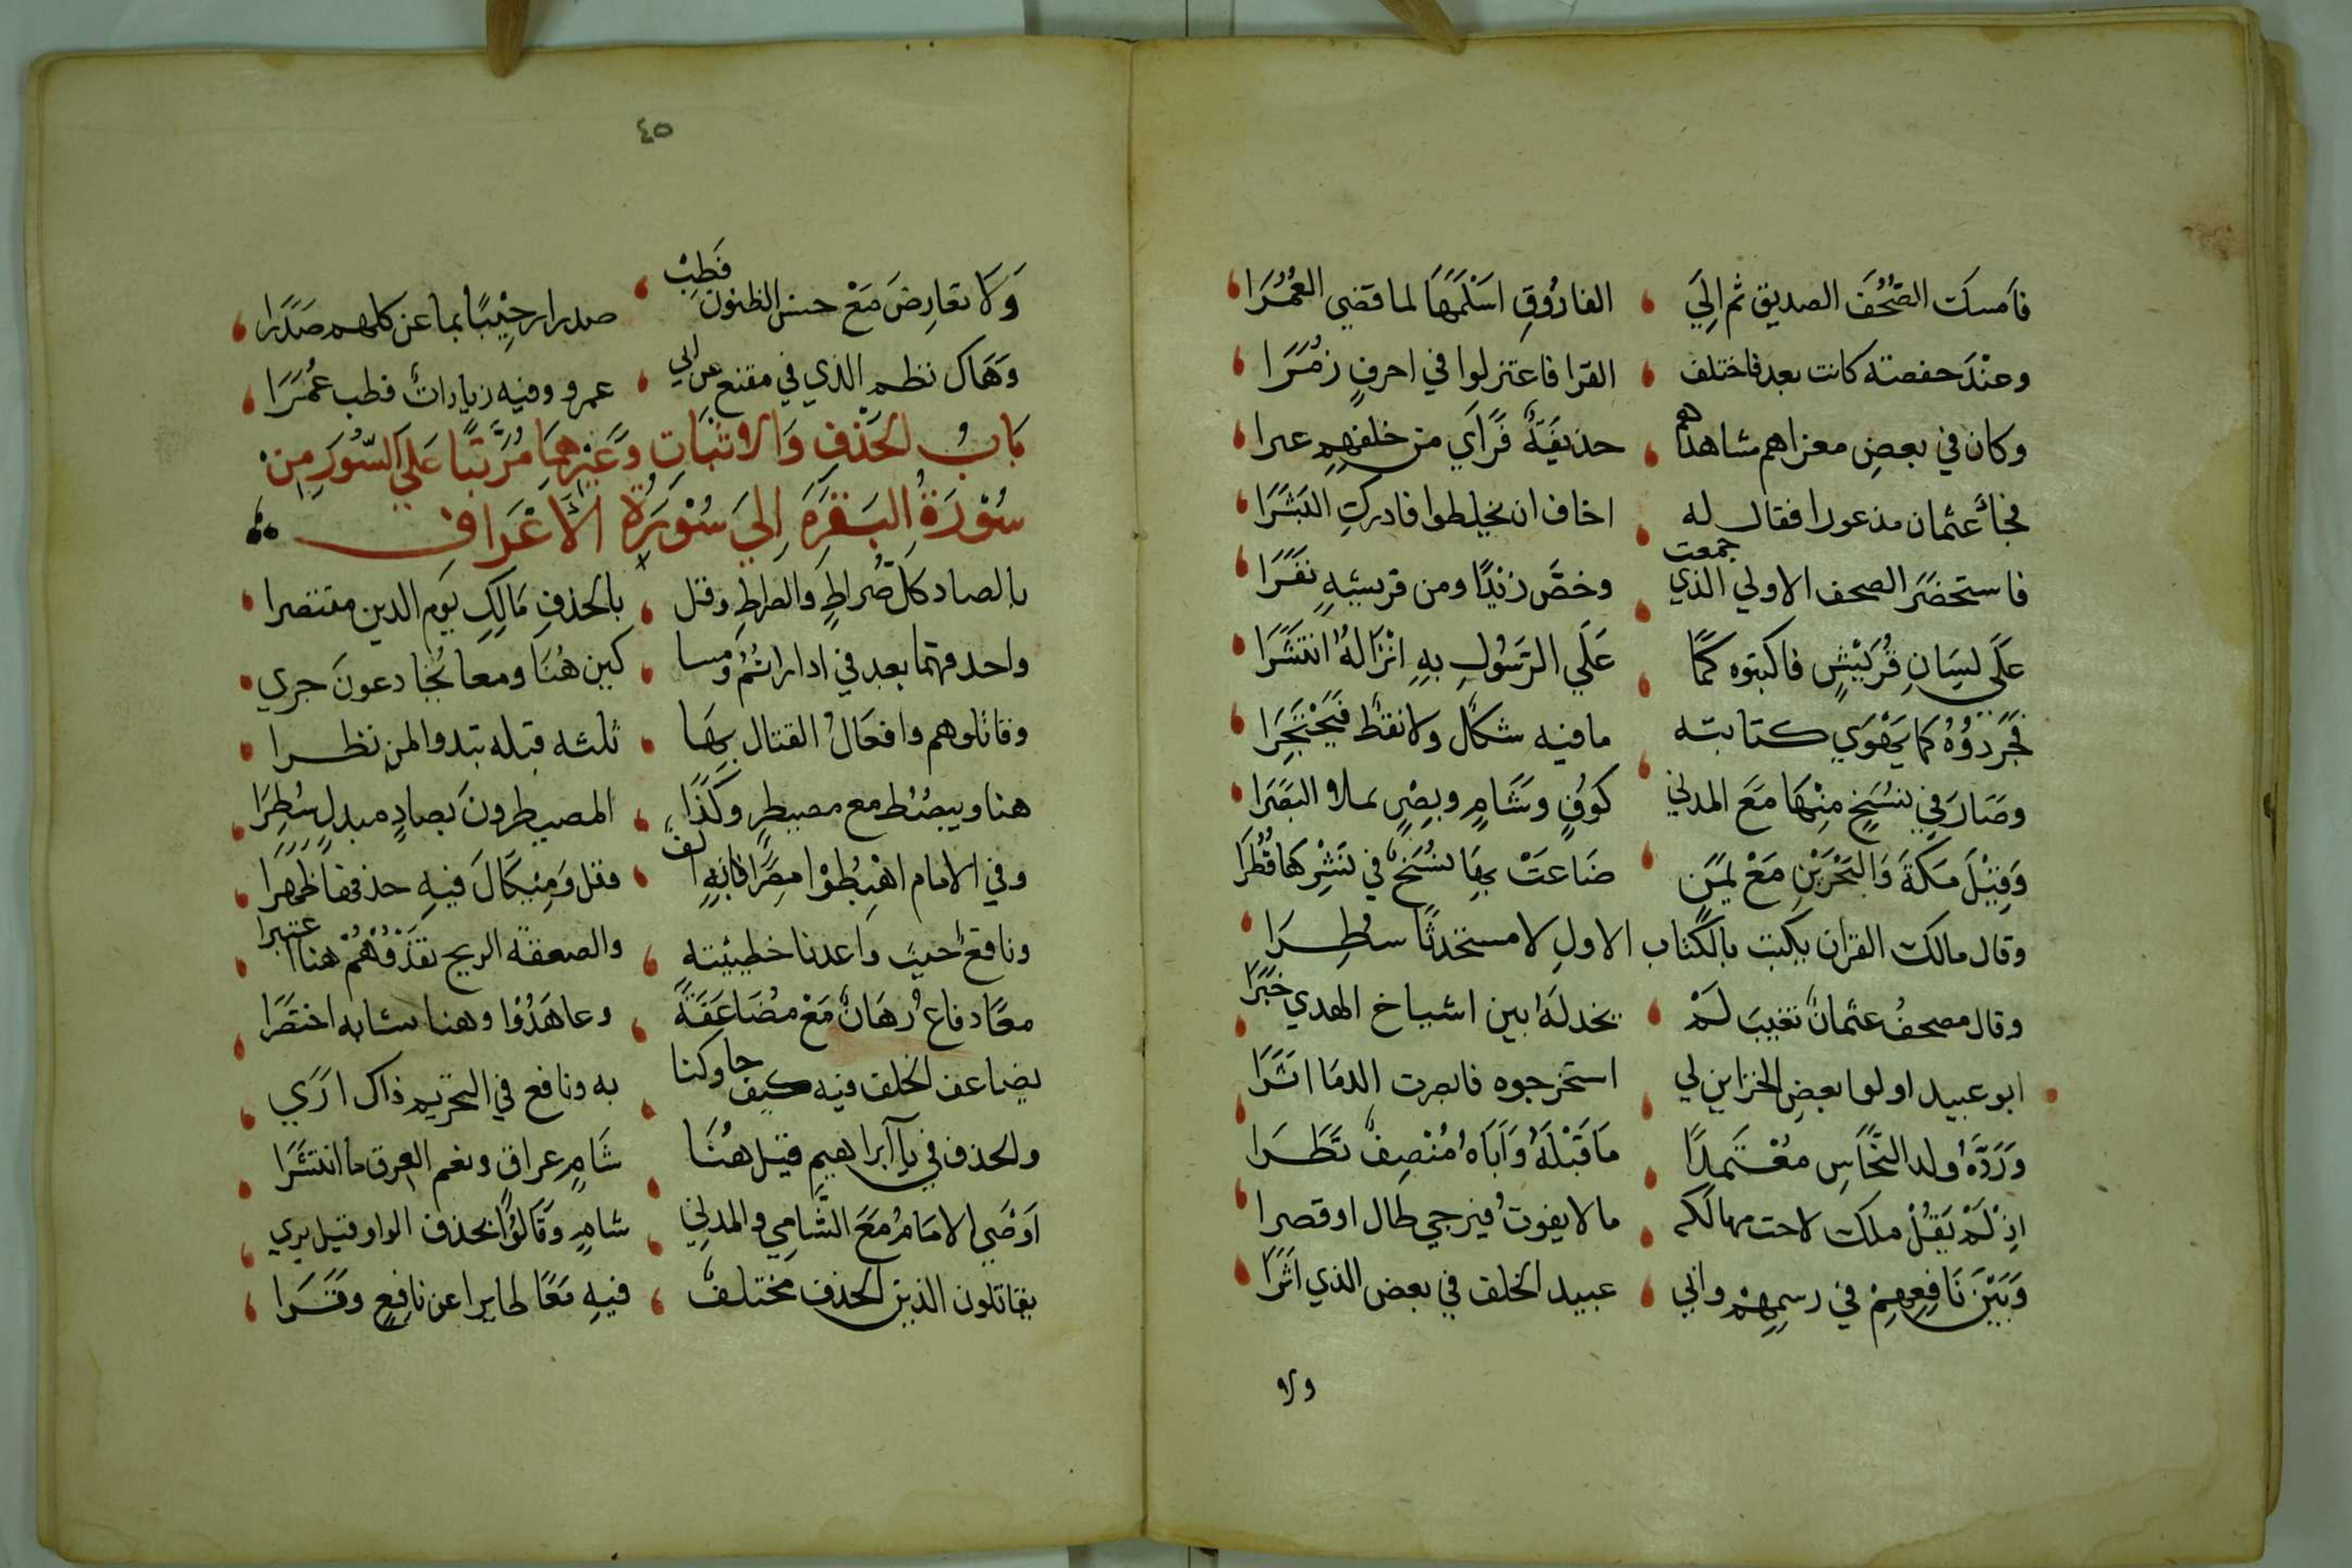 فأمسكَت الصُّحُفَ الصديق ثم اِلَي الفارُوقِ اسْلَمَهَا لما قضي العُمُرَا
وعنْدَ حفصته كانت بعد فاختلف القرا فاعتزلوا في احرفٍ زُمَرَا
وكان في بعضِ مغزاهم مشاهدهم حذيفَةٌ فَرَأي من خلفهِم عبرا
فجاءَ عثمان مذعورا فقال له اخاف ان يخلطوا فادركِ البَشَرَا
فاستحضَرَ الصحف الاولي الذي جمعت وخصَّ زَيْدًا ومن قريشِهِ نفَرَا
عَلَي لسَانِ قُرَيْشٍ فاكتبوه كَمَا عَلَي الرّسُولِ بهِ اِنْزَالهُ انتَشَرَا
فَجَرّدُوُهُ كما يَهْوَي كتابته ما فيه شكلٌ ولا نقطٌ فَيَحْتَجِرَا
وصَارَ في نسَخٍ مِنْهَا مَعَ المدني كوُفٍ وشَامٍ وبصْرٍ تملاو البَصَرَا
وَقِيْلَ مَكّةَ وَالبَحْرَيْنِ مَعْ يَمَنٍ ضَاعَتْ بِهَا نسَخٌ في نَشْرِهَا قُطُرَا
وقال مالك القران يكتب بالكتاب الاولِ لا مستحدثًا سُطِرَا
وقال مصحفُ عثمانٌ تغيبَ لَمْ يخدلَهُ بين اشياخ الهدي خَبَرَا
ابو عبيد اولوا بعضِ الخزاينِ لي استخرجوه فابصرت الدمَا اثَرَا
وَرَدَّهُ ولد النَّحَاسِ مُعْتَمِدًا مَا قَبْلَهُ وَاَبَاهُ مُنْصِفٌ نَظَرَا
اِذْ لَمْ يَقُلْ ملك لاحت مهالكه ما لا يفوتُ فيرجي طال او قصرا
وَبَيْنَ نَافِعِهِمْ في رسمِهِمْ وابي عبيد الخلف في بعض الذي اَثَرَا
ولا
٤٥
وَلَا تعَارِضَ مَعْ حسن الظنون فَطِبْ صدرا رحِيْبًا بما عن كلهم صَدَرَا
وَهَاك نظم الذي في مقنع عن ابي عمرو وفيه زياداتٌ فطب عُمُرَا
بَابُ الحَذْفِ وَالاثبَاتِ وَغَيْرِهِمَا مُرَتَّبًا عَلَي السُّوَرِ مِنْ
سُوْرَةُ البَقَرَهِ اِلَيَ سُوْرَةِ الاَعْرَافِ
بالصاد كلّ صُرَاطٍ والصّراطِ وقل بالحذفِ مَالِكِ يَوم الدين مقتصرا
واحذفهما بعد في اداراتمُ ومسا كين هُنَا ومعا يُخَادعونَ جري
وقاتلوهم وافعَالُ القتال بِهَا ثلثه قبله تبدو المن نظرا
هنا ويبصُط مع مصيطرٍ وكَذا المصيطرونَ بصادٍ مبدلٍ سُطِرَا
وفي الامام اهْبِطُوْا مِصْرًا فَاِنَهِ الف وقل وَمِيْكَالَ فيهِ حذفها ظَهَرَا
ونافعٌ حيثُ واعدنا خطيئته والصعقة الريح تفدُوُهُمْ هنا اعتبرا
معًا دفاعُ رهَانٌ مَعْ مُضَاعَفَةً وعاهَدُوا وهنا تشابه اختصَرَا
يضاعف الخلف فيه كيف جا وكتا به ونافع في التحريم ذاك ارَي
والحذف في يآ ابراهيم قيل هُنَا شَامٍ عراقٍ ونعم العرق ما انتشَرَا
اوصَي الامَامُ مَعَ الشّامِي والمدني شامٍ وَقَالوُا بحذف الواو قبل يري
يقاتلون الذين الحذف مختلفٌ فيهِ مَعًا طايرا عن نافِعٍ وَقَرَا